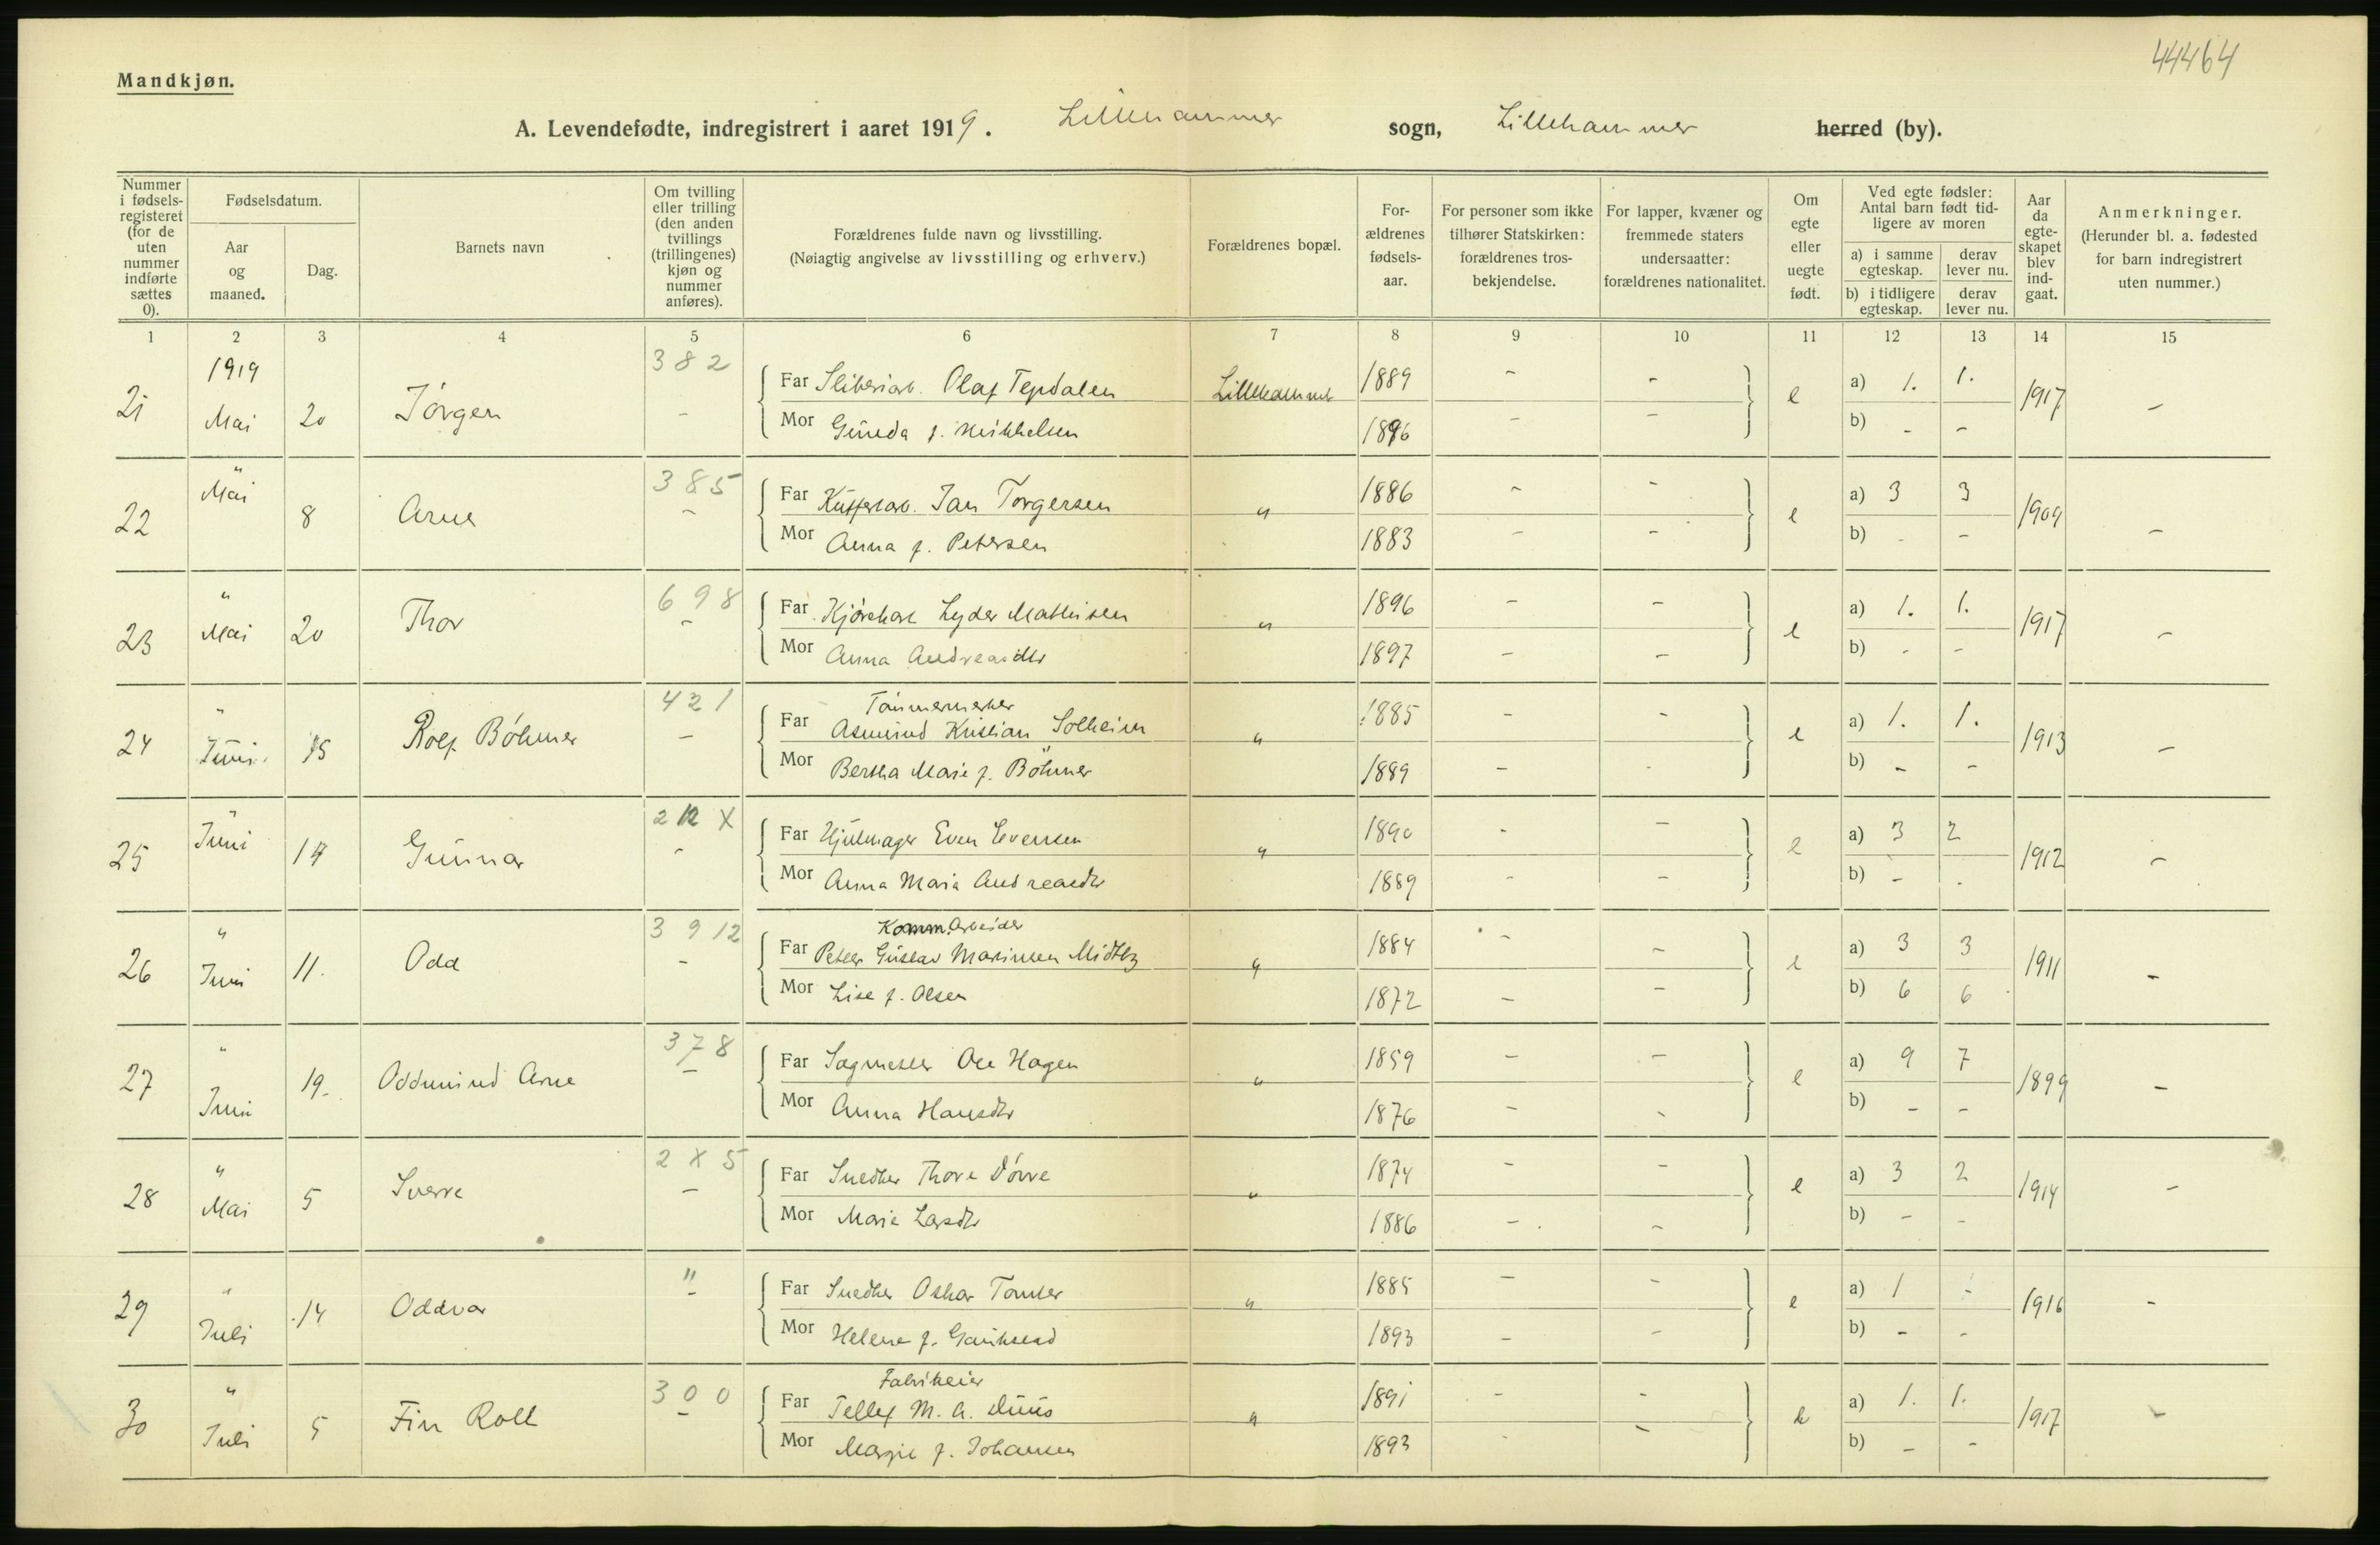 44464
Mandkjøn.
A. Levendefødte, indregistrert i aaret 1919. Lillehammer sogn, Lillehammer herred (by).
Nummer i fødsels-registeret (for de uten nummer indførte sættes 0).
Fødselsdatum.
Aar og maaned.
Dag.
Barnets navn
Om tvilling eller trilling (den anden tvillings (trillingenes) kjøn og nummer anføres).
Forældrenes fulde navn og livsstilling.
(Nøiagtig angivelse av livsstilling og erhverv.)
Forældrenes bopæl.
For-ældrenes fødsels-aar.
For personer som ikke tilhører Statskirken: forældrenes tros-bekjendelse.
For lapper, kvæner og fremmede staters undersaatter: forældrenes nationalitet.
Om egte eller uegte født.
Ved egte fødsler: Antal barn født tid-ligere av moren
a) i samme egteskap. derav lever nu.
b) i tidligere egteskap. derav lever nu.
Aar da egte-skapet blev ind-gaat.
Anmerkninger.
(Herunder bl. a. fødested for barn indregistrert uten nummer.)
1 2 3 4 5 6 7 8 9 10 11 12 13 14 15
1919 382
21 Mai 20 Jörgen - Far Sliberiarb. Olaf Tepdalen Lillehammer 1889 - - e a) 1. 1. 1917 -
Mor f. Mikkelsen 1896 - - b) - -
" 385
22 Mai 8 Arne - Far Jan Torgersen " 1886 - - e a) 3 3 1909 -
Mor Anna f. Petersen 1883 - - b) - -
" 698
23 Mai 20 Thor - Far Lyder Mathisen " 1896 - - e a) 1. 1. 1917 -
Mor Anna Andreasdtr 1897 - - b) - -
" 421 Tömmermerker
24 Juni 15 Rolf Böhmer - Far Asmund Kristian Solheim " 1885 - - e a) 1. 1. 1913 -
Mor Bertha Marie f. Böhmer 1889 - - b) - -
" 212 X
25 Juni 17 Gunnar - Far Hjulmager Even Evensen " 1890 - - e a) 3 2 1912 -
Mor Anna Maria Andreasdtr 1889 - - b) - -
" 3 9 12 Komm. Arbeider
26 Juni 11. Odd - Far Peter Gustav Marinsen Midtby " 1884 - - e a) 3 3 1911 -
Mor Lise f. Olsen 1872 - - b) 6 6
" 378
27 Juni 19. Oddmund Arne - Far Sagmester Ole Hagen " 1859 - - e a) 9 7 1899 -
Mor Anna Hansdtr 1876 - - b) - -
" 2 X 5
28 Mai 5 Sverre - Far Snedker Thore Dörre " 1874 - - e a) 3 2 1914 -
Mor Marie Larsdtr 1886 - - b) - -
" "
29 Juli 14 Oddvar - Far Snedker Oskar Tomter " 1885 - - e a) 1 - 1916 -
Mor Helene f. 1893 - - b) - -
" 300 Fabrikeier
30 Juli 5 Fin Roll - Far Tellef M. A. Duus " 1891 - - e a) 1. 1. 1917 -
Mor Margie f. Johansen 1893 - - b) - -